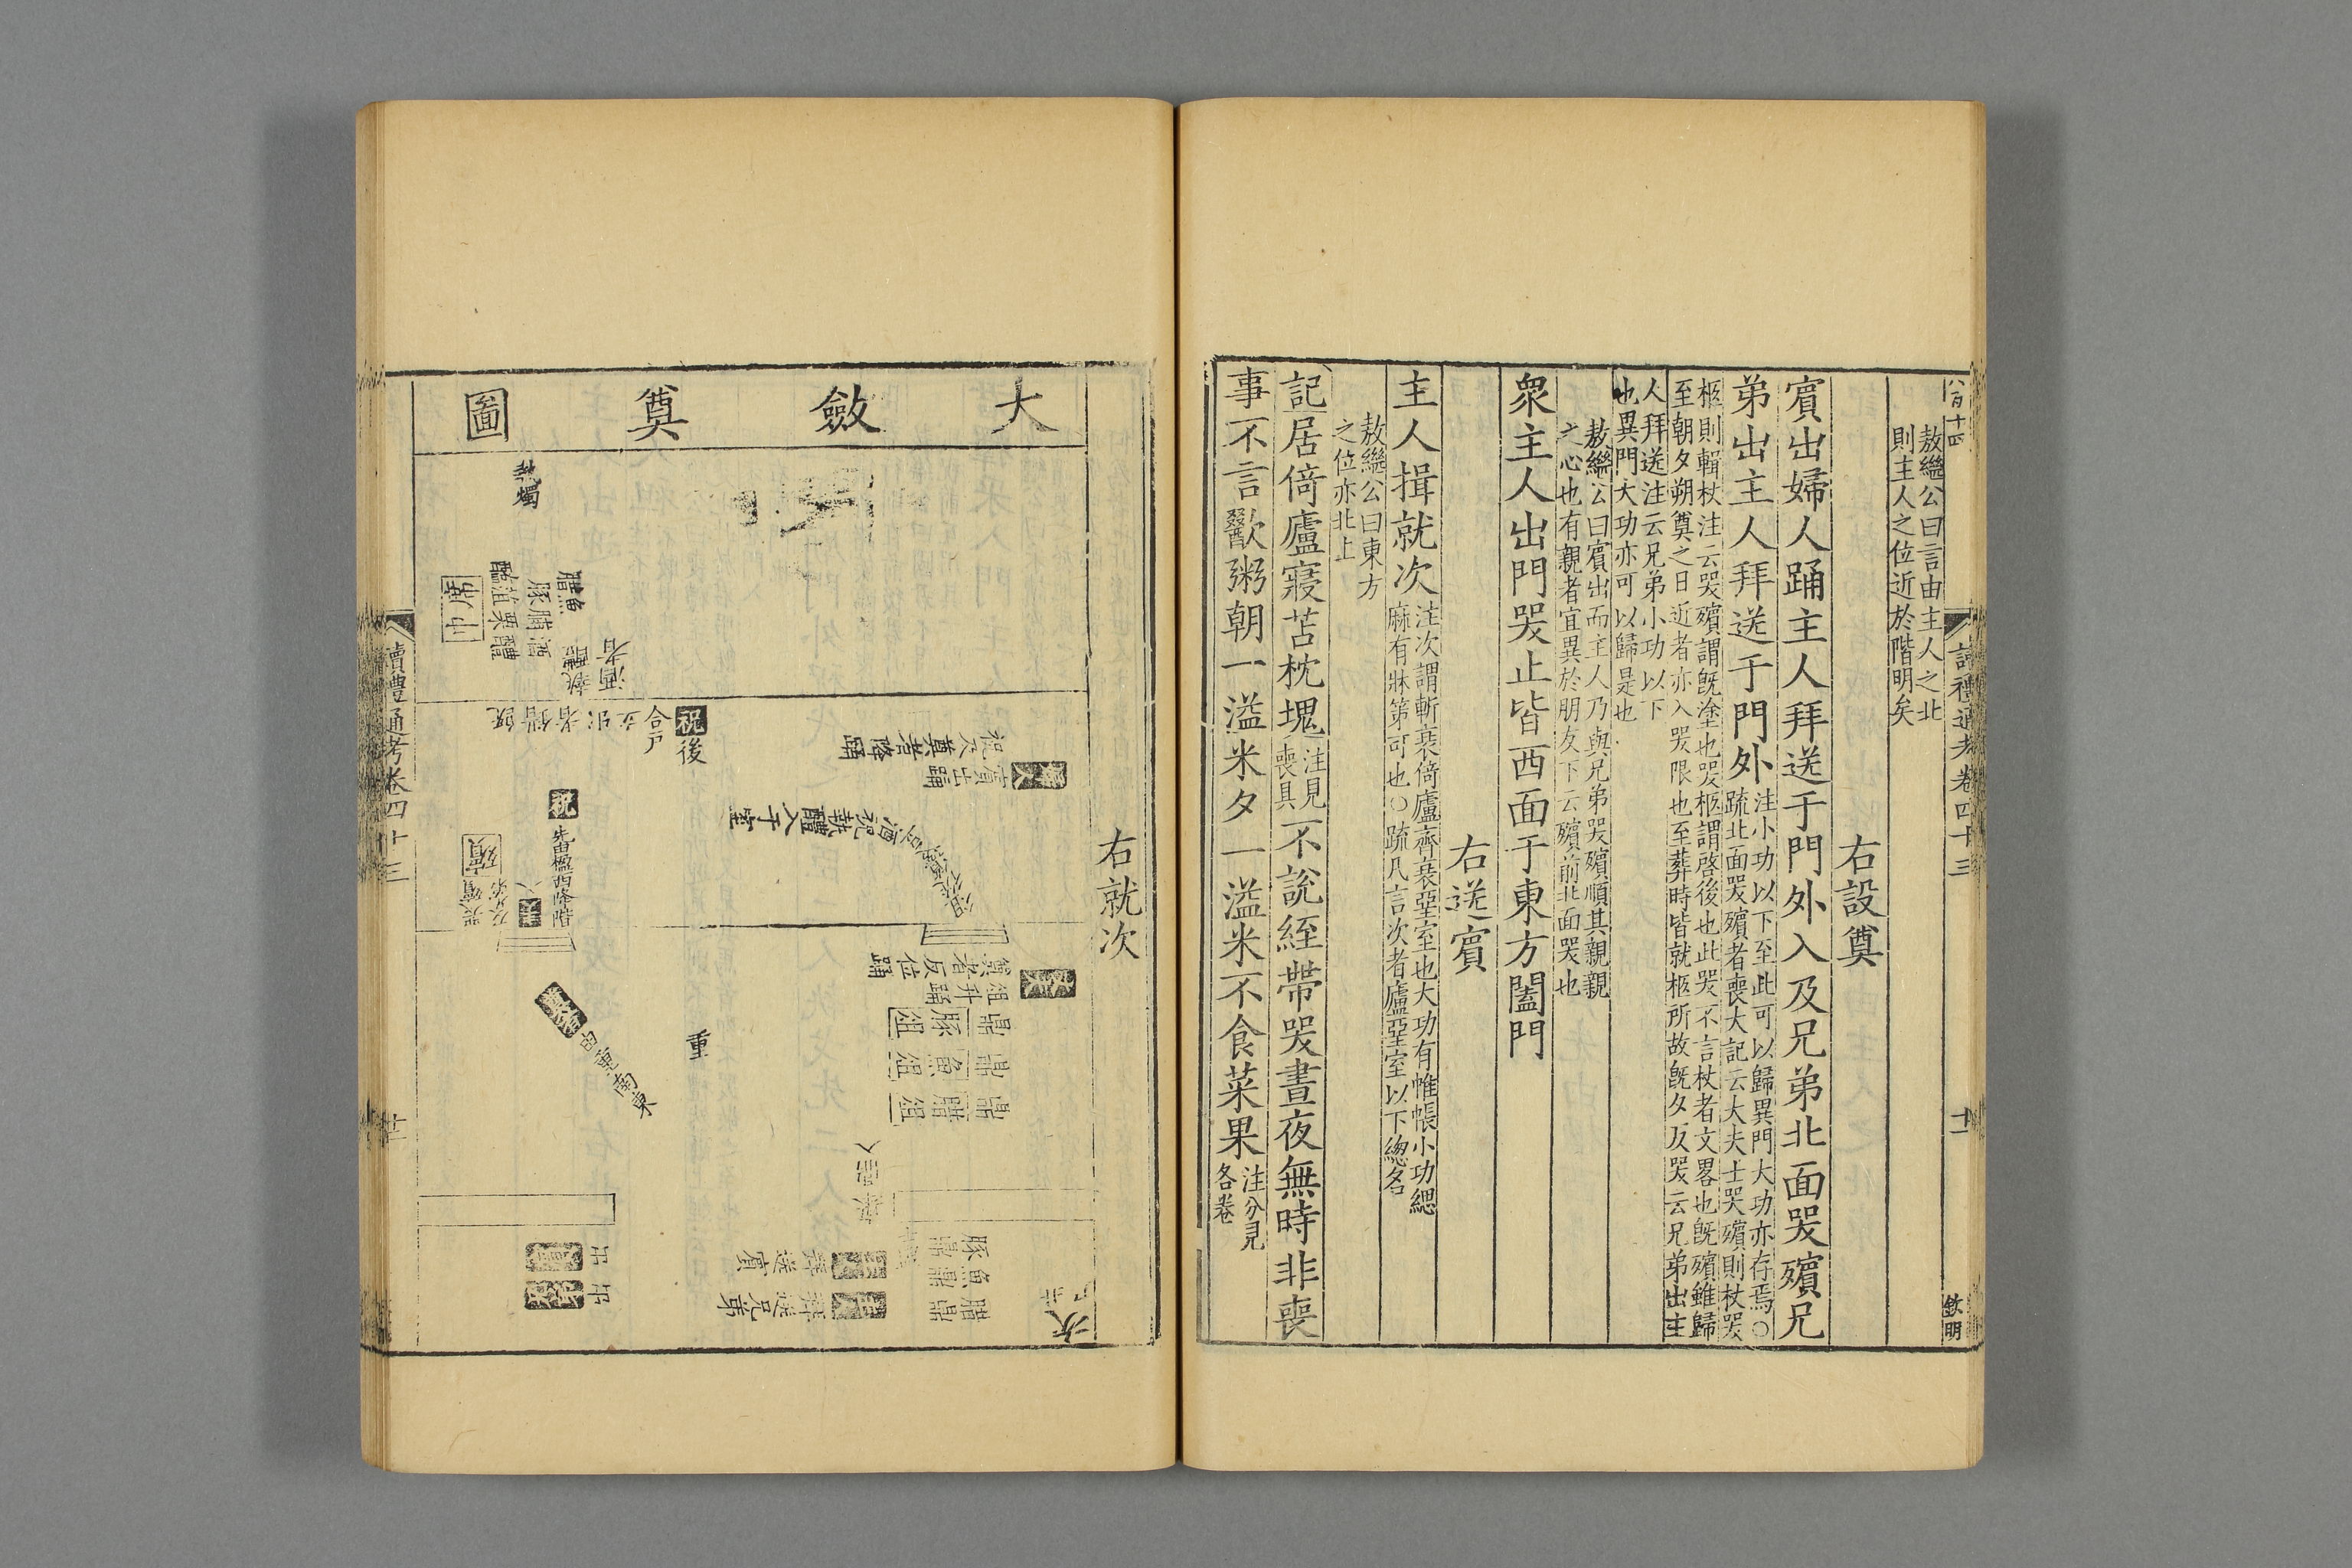 讀禮通考卷四十三
八百十四
敖繼公曰言由主人之北
則主人之位近於階明矣
右設奠
賓出婦人踊主人拜送于門外入及兄弟北面哭殯兄
弟出主人拜送于門外
注小功以下至此可以歸異門大功亦存焉○
疏北面哭殯者喪大記云大夫士哭殯則杖哭
柩則輯杖注云哭殯謂旣塗也哭柩謂啓後也此哭不言杖者文畧也旣殯雖歸
至朝夕朔奠之日近者亦入哭限也至葬時皆就柩所故旣夕反哭云兄弟出主
人拜送注云兄弟小功以下
也異門大功亦可以歸是也
敖繼公曰賓出而主人乃與兄弟哭殯順其親親
之心也有親者宜異於朋友下云殯前北面哭也
衆主人出門哭止皆西面于東方闔門
右送賓
主人揖就次
注次謂斬衰倚廬齊衰堊室也大功有帷帳小功緦
麻有牀第可也○疏凡言次者廬堊室以下總名
敖繼公曰東方
之位亦北上
記居倚廬寢苫枕塊
注見
喪具
不說絰帶哭晝夜無時非喪
事不言歠粥朝一溢米夕一溢米不食菜果
注分見
各卷
欽明
右就次
大斂奠圖
執燭
腊魚
豚脯酒
醢菹栗醴
祝後
合戶
祝又奠者降踊
賓出踊
酒祝執醴入于室
祝
先由楹西降階
殯
重
由重南東
奠者反位踊
俎升踊
鼎
豚俎
鼎
魚俎
鼎
腊俎
豚鼎
魚鼎
腊鼎
拜送賓
拜送兄弟
次
讀禮通考卷四十三